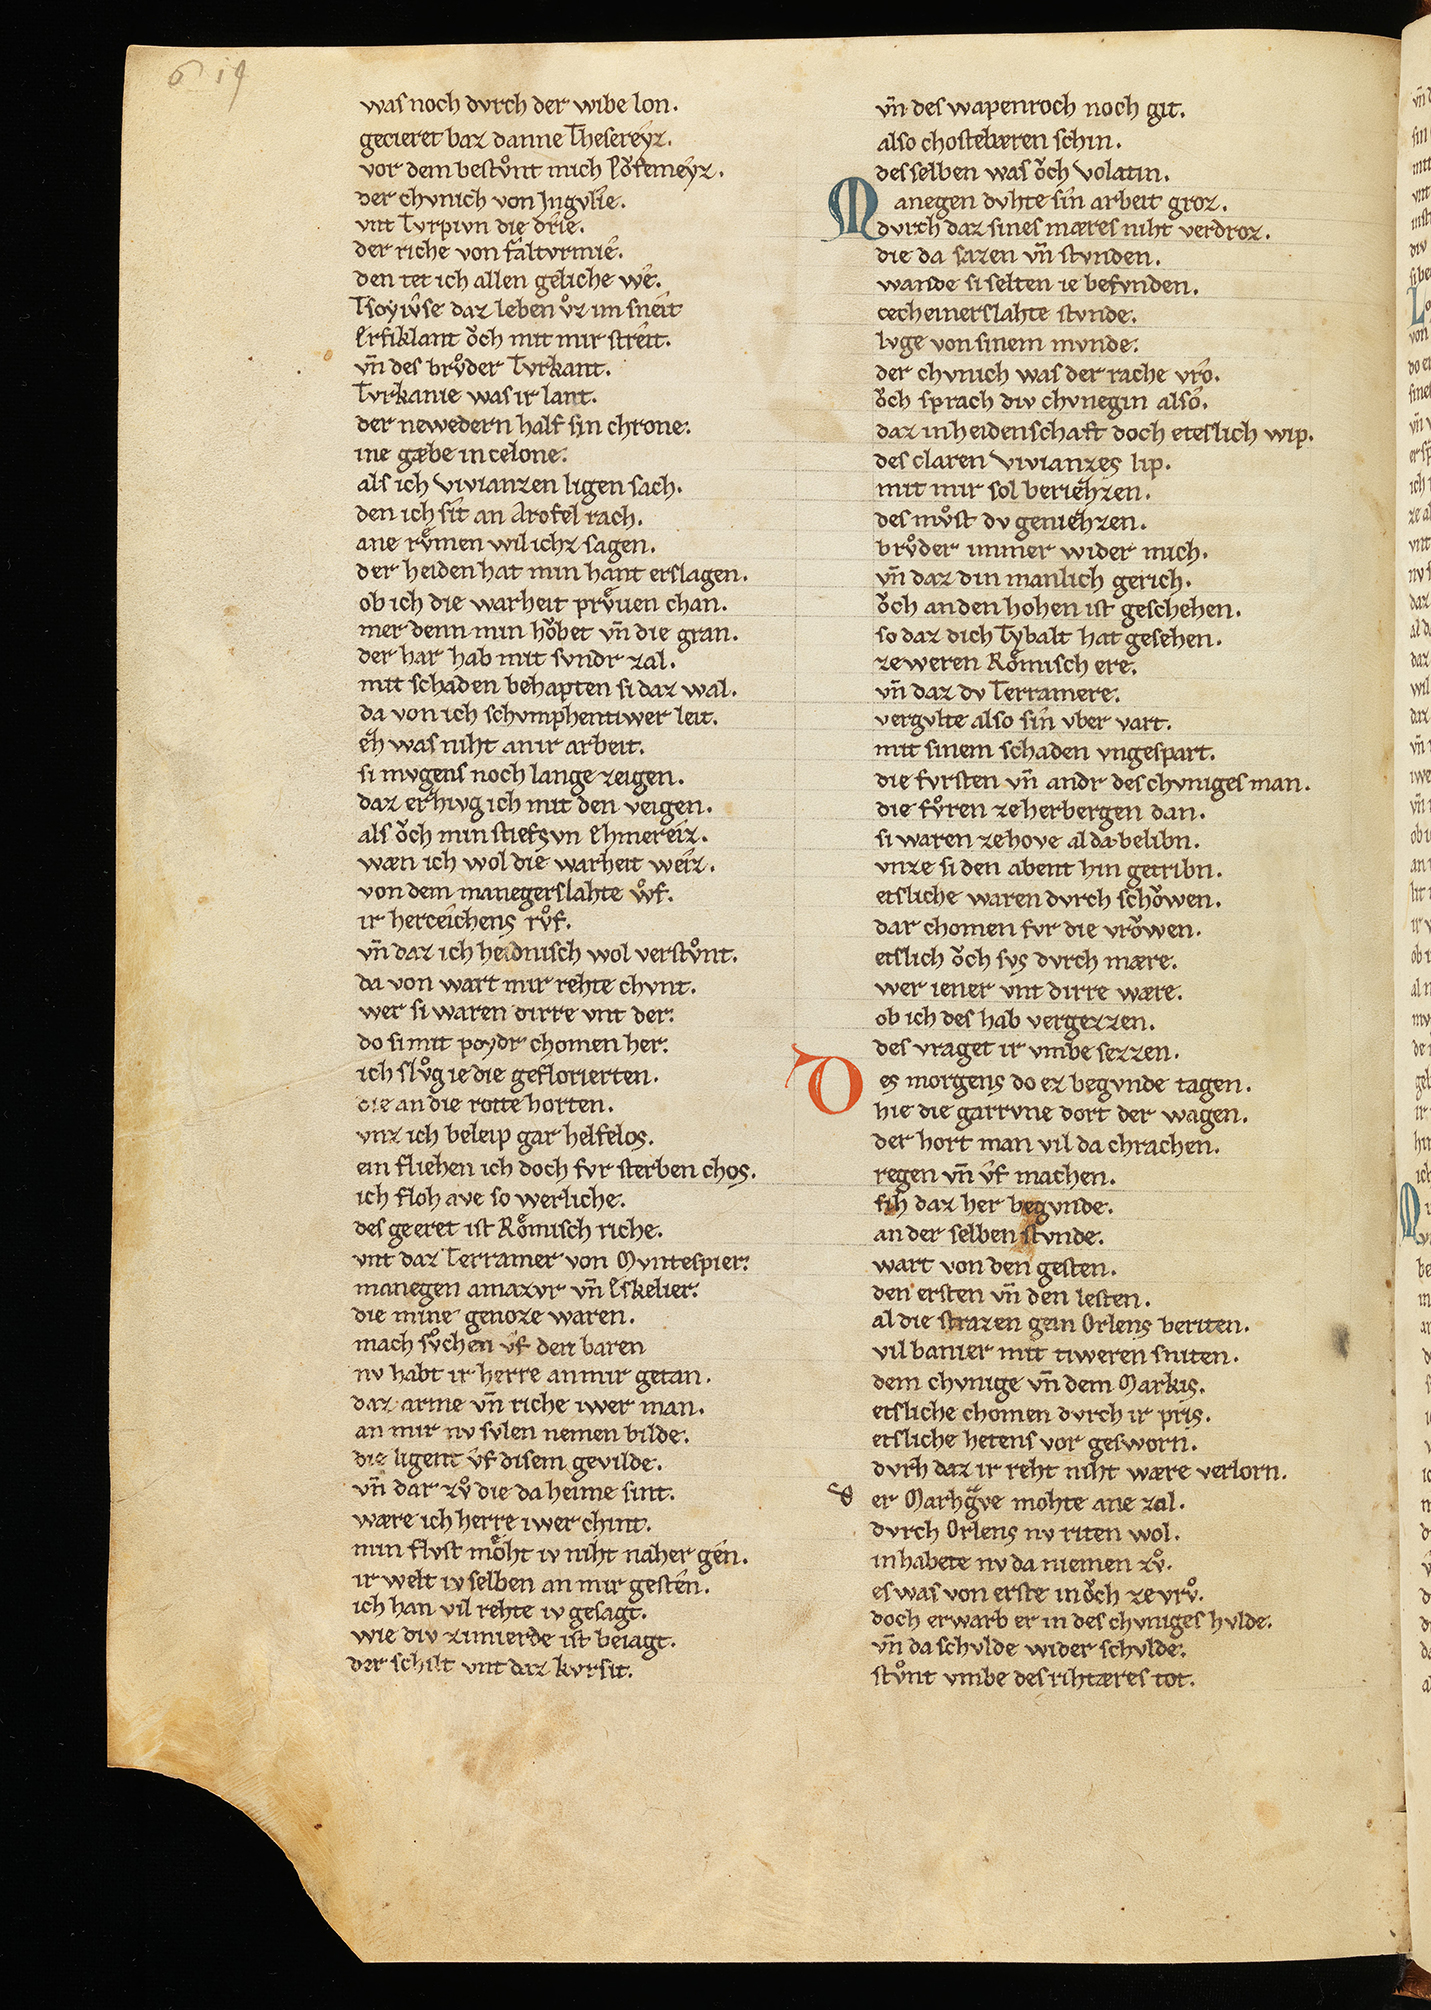 619
was noch dvrch der wibe lon.
gecieret baz danne Thesereyz.
vor dem bestv̊nt mich Pôfemeyz.
der chvnich von Jngvlie.
vnt Tvrpivn die drîe.
der riche von falturmîe.
den tet ich allen geliche wê.
Tsoyiv̂se daz leben v̊z im sneit
Erfiklant ôch mit mir streit.
vn̄ des brv̊der Tvrkant.
Tvrkanie was ir lant.
der newedern half sin chrone.
ine gæbe in ce lone.
als ich Vivianzen ligen sach.
den ich sît an Arofel rach.
ane rv̊men wil ichz sagen.
der heiden hat min hant erslagen.
ob ich die warheit prv̊uen chan.
mer denn min hôbet vn̄ die gran.
der har hab mit svndr zal.
mit schaden behapten si daz wal.
da von ich schvmphentiwer leit.
êh was niht an ir arbeit.
si mvgens noch lange zeigen.
daz erhivg ich mit den veigen.
als ôch min stiefsvn Ehmereiz.
wæn ich wol die warheit weiz.
von dem manegerslahte wv̊f.
ir herceichens rv̊f.
vn̄ daz ich heidnisch wol verstv̊nt.
da von wart mir rehte chvnt.
wer si waren dirre vnt der.
do si mit poydr chomen her.
ich slv̊g ie die geflorierten.
die an die rotte horten.
vnz ich beleip gar helfelos.
ein fliehen ich doch fvr sterben chos.
ich floh ave so werliche.
des geeret ist Rômisch riche.
vnt daz Terramer von Mvntespier.
manegen amazvr vn̄ Eskelier.
die mine genoze waren.
mach sv̊chen v̂f den baren
nv habt ir herre an mir getan.
daz arme vn̄ riche iwer man.
an mir nv svlen nemen bilde.
die ligent v̂f disem gevilde.
vn̄ dar zv̊ die da heime sint.
wære ich herre iwer chint.
min flvst môht iv niht naher gen.
ir welt iv selben an mir gestên.
ich han vil rehte iv gesagt.
wie div zimierde ist beiagt.
der schilt vnt daz kvrsit.
vn̄ des wapenroch noch git.
also chostebæren schin.
des selben was ôch volatin.
Manegen dvhte sîn arbeit groz.
dvrch daz sines mæres niht verdroz.
die da sazen vn̄ stvnden.
wande si selten ie befvnden.
cecheinerslahte stvnde.
lvge von sinem mvnde.
der chvnich was der rache vrô.
ôch sprach div chvnegin alsô.
daz in heidenschaft doch eteslich wip.
des claren Vivianzes lip.
mit mir sol beriehzen.
des mv̊st dv geniehzen.
brv̊der immer wider mich.
vn̄ daz din manlich gerich.
ôch an den hohen ist geschehen.
so daz dich Tybalt hat gesehen.
ze weren Rômisch ere.
vn̄ daz dv Terramere.
vergvlte also sîn vber vart.
mit sinem schaden vngespart.
die fvrsten vn̄ andr des chvniges man.
die fv̊ren ze herbergen dan.
si waren ze hove al da belibn.
vnze si den abent hin getribn.
etsliche waren dvrch schôwen.
dar chomen fvr die vrôwen.
etslich ôch svs dvrch mære.
wer iener vnt dirre wære.
ob ich des hab vergezzen.
des vraget ir vmbe sezzen.
Des morgens do ez begvnde tagen.
hie die garrvne dort der wagen.
der hort man vil da chrachen.
regen vn̄ v̂f machen.
sih daz her begvnde.
an der selben stvnde.
wart von den gesten.
den ersten vn̄ den lesten.
al die strazen gein Orlens beriten.
vil banier mit tiweren sniten.
dem chvnige vn̄ dem Markis.
etsliche chomen dvrch ir pris.
etsliche hetens vor gesworn.
dvrh daz ir reht niht wære verlorn.
der Marhgv̊e mohte ane zal.
dvrch Orlens nv riten wol.
in habete nv da niemen zv̊.
es was von erste in ôch ze vrv̊.
doch erwarb er in des chvniges hvlde.
vn̄ da schvlde wider schvlde.
stv̊nt vmbe des rihtæres tot.